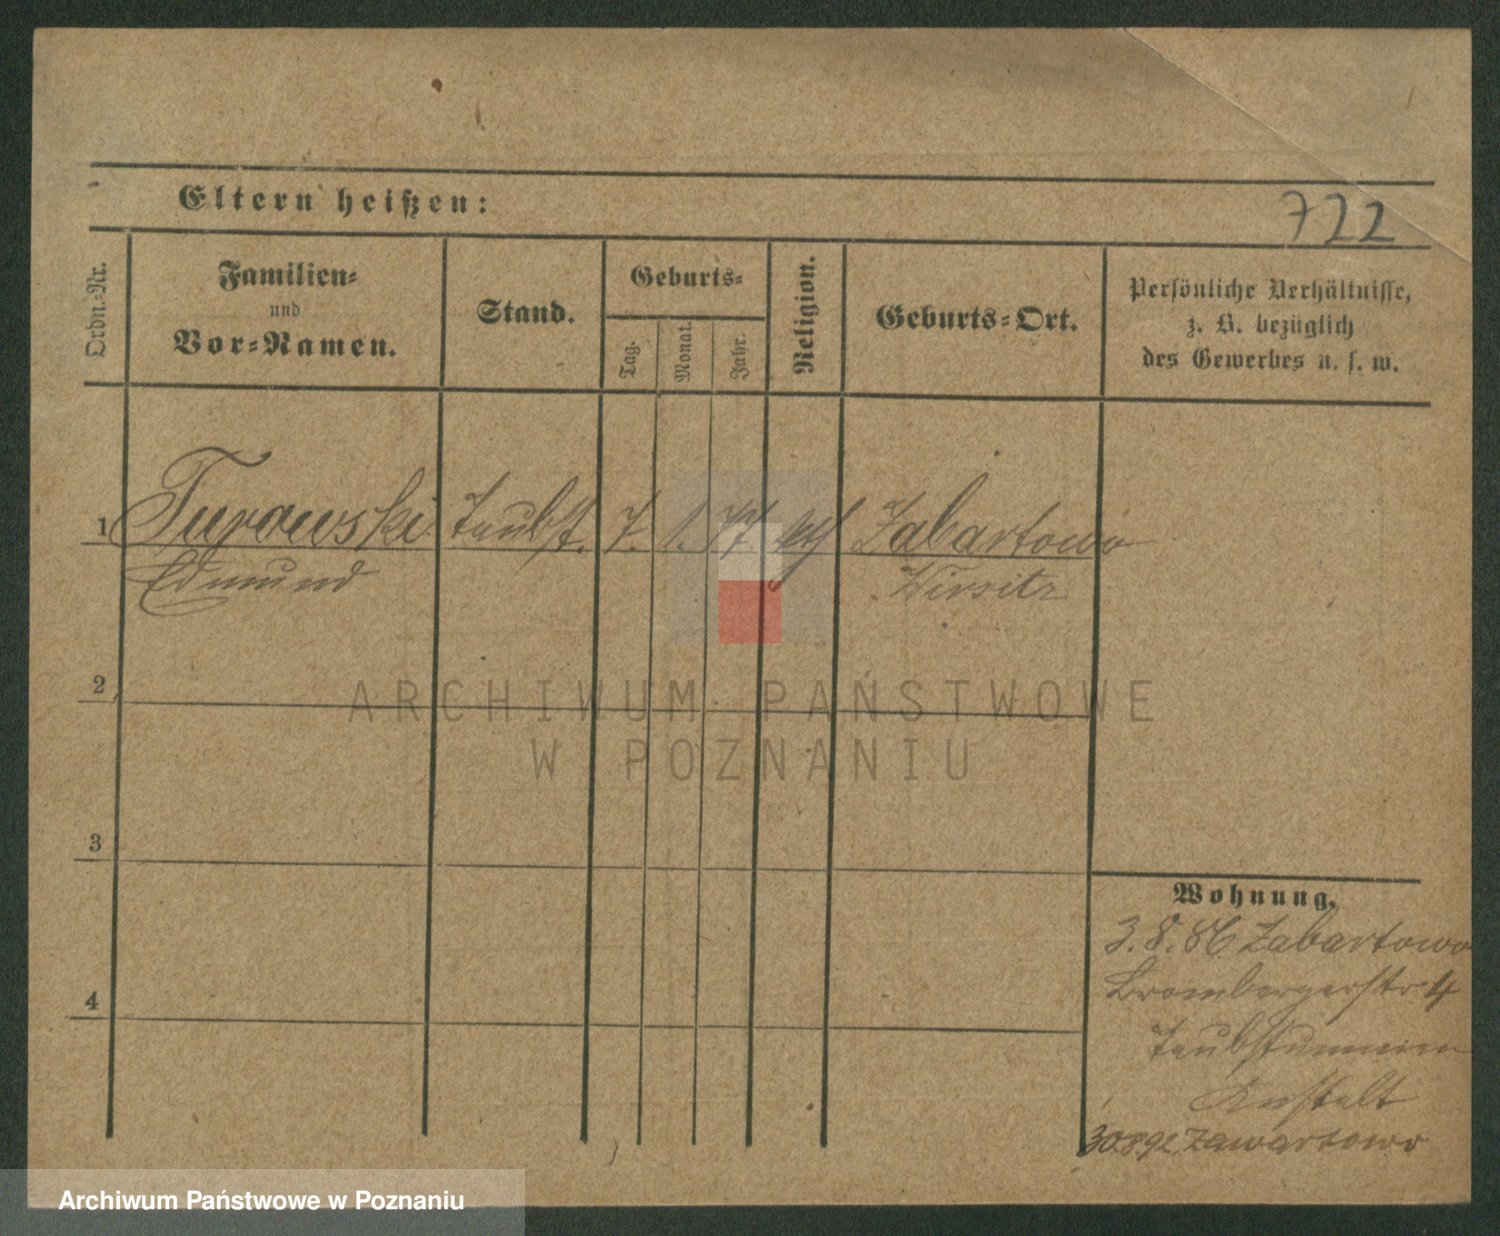 Eltern heißen:
722
Ordn.-Nr.
Familien-
und
Vor-Namen.
Stand.
Geburts-
Tag.
Monat.
Jahr.
Religion.
Geburts-Ort.
Persönliche Verhältnisse,
z. B. bezüglich
des Gewerbes u. s. w.
1 Turowski Taubst. 7. 1. 77 Zabartowo
Edmund Wirsitz
2
3
4
Wohnung.
3.8.86 Zabartowo
Brombergerstr 4
Taubstummen
Anstalt
30.8 92 Zawartowo
ARCHIWUM PAŃSTWOWE
W POZNANIU
Archiwum Państwowe w Poznaniu